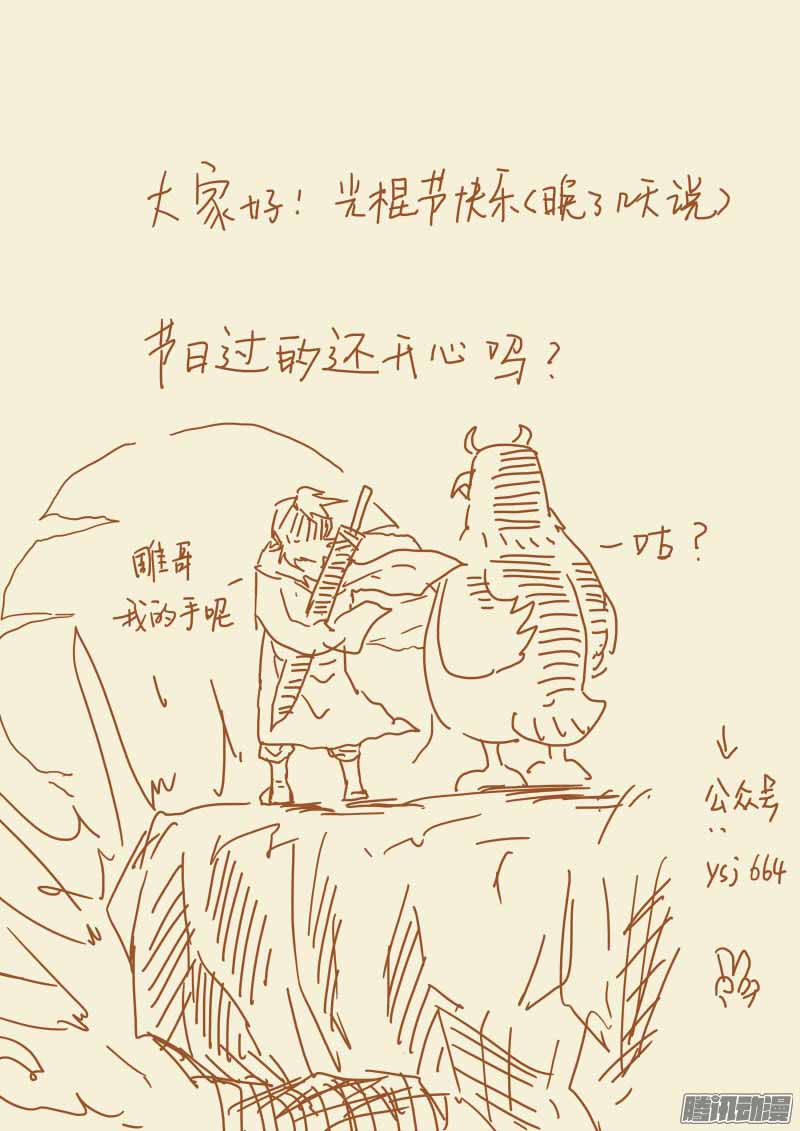 大家好！光棍节快乐(晚了呋说)
节日过的还开心吗？
雕哥
我的手呢
咕？
公众号
:
ysj664
腾讯动漫